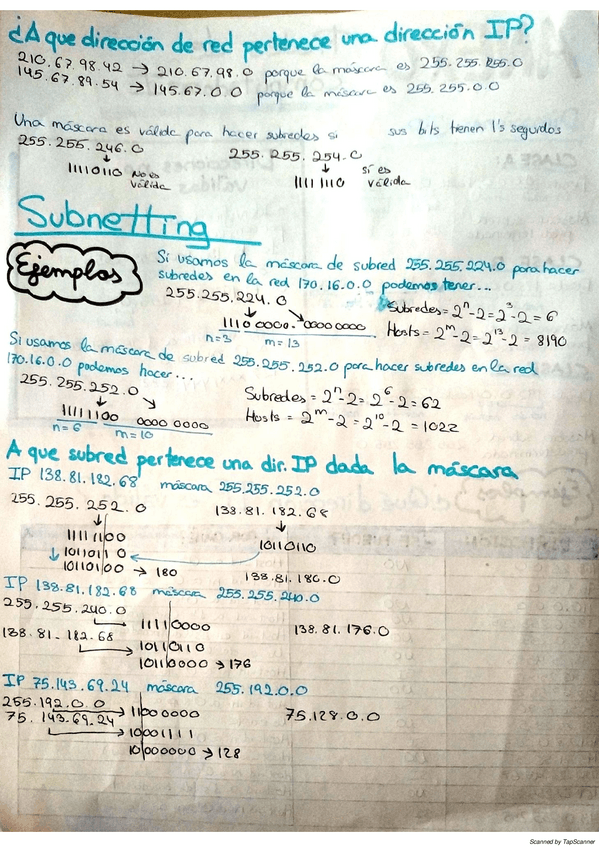 ¿A que dirección de red pertenece una dirección IP?
210.67.98.42 → 210.67.98.0 porque la máscara es 255.255.255.0
145.67.89.54 → 145.67.0.0 porque la máscara es 255.255.0.0
Una máscara es válida para hacer subredes si sus bits tienen 1's seguidos
255.255.246.0 255.255.254.0
11110110 No es válida 11111110 Sí es válida
Subnetting
Ejemplos
Si usamos la máscara de subred 255.255.224.0 para hacer
subredes en la red 170.16.0.0 podemos tener...
255.255.224.0 Subredes = 2^n - 2 = 2^3 - 2 = 6
11100000. 00000000 Hosts = 2^m - 2 = 2^13 - 2 = 8190
n=3 m=13
Si usamos la máscara de subred 255.255.252.0 para hacer subredes en la red
170.16.0.0 podemos hacer...
255.255.252.0 Subredes = 2^n - 2 = 2^6 - 2 = 62
11111100 0000 0000 Hosts = 2^m - 2 = 2^10 - 2 = 1022
n=6 m=10
A que subred pertenece una dir. IP dada la máscara
IP 138.81.182.68 máscara 255.255.252.0
255.255.252.0 138.81.182.68
11111100
10110110 10110110
10110100 → 180 138.81.180.0
IP 138.81.182.68 máscara 255.255.240.0
255.255.240.0
11110000 138.81.176.0
138.81.182.68
10110110
10110000 → 176
IP 75.143.69.24 máscara 255.192.0.0
255.192.0.0 → 11000000 75.128.0.0
75.143.69.24 → 10001111
10000000 → 128
Scanned by TapScanner